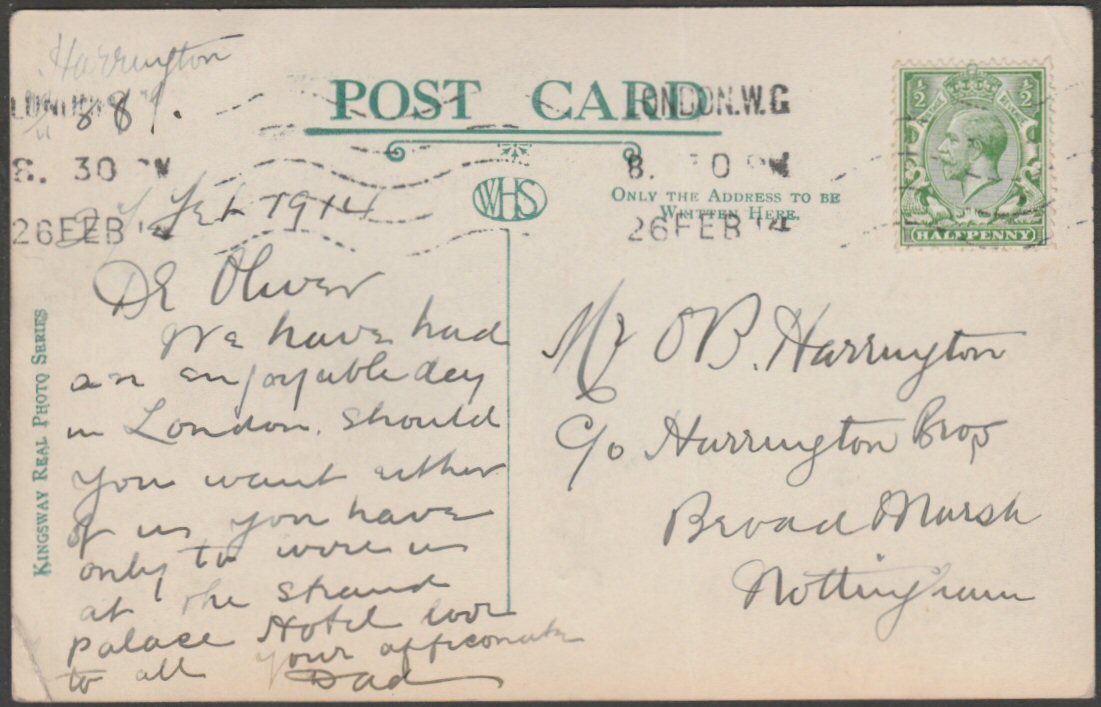 Harrington
88
POST CARD
LONDON.W.C
8. 30 PM
26 FEB 14
LONDON.W.C
8. 30 PM
26 FEB 14
½ ½
HALFPENNY
WHS
ONLY THE ADDRESS TO BE
WRITTEN HERE.
KINGSWAY REAL PHOTO SERIES
Feb 1914
Dr Oliver
We have had
an enjoyable day
in London. Should
you want either
of us you have
only to wire us
at the Strand
Palace Hotel love
to all your afficonate
Dad
Mr O B. Harrington
C/o Harrington Bros
Broad Marsh
Nottingham